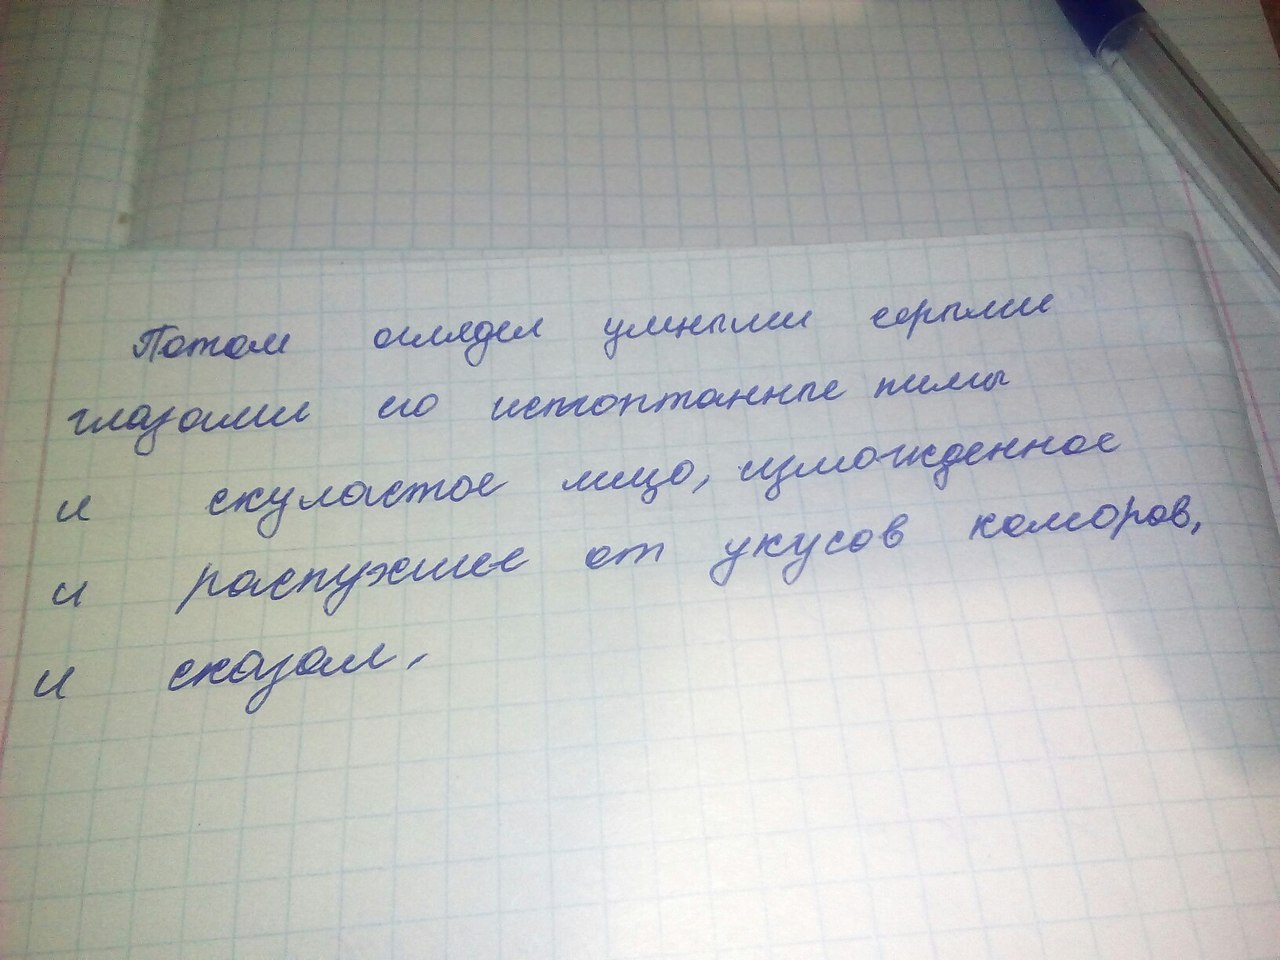 Потом оглядел умными серыми
глазами его истоптанные пимы
и скуластое лицо, изможденное
и распухшее от укусов комаров,
и сказал,